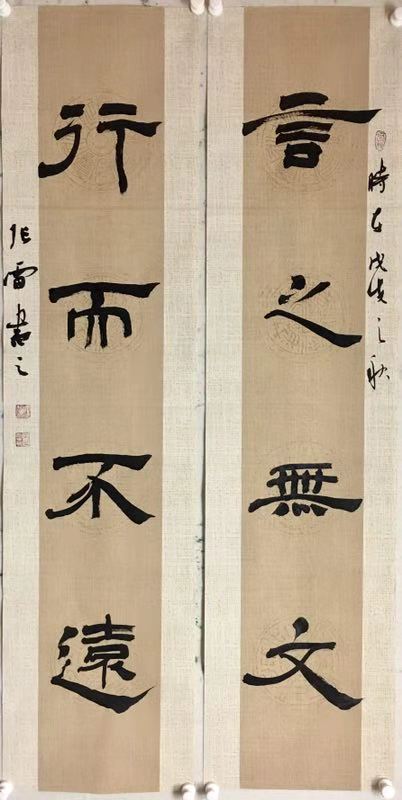 時在戊戌之秋
言之無文
行而不遠
張雷書之